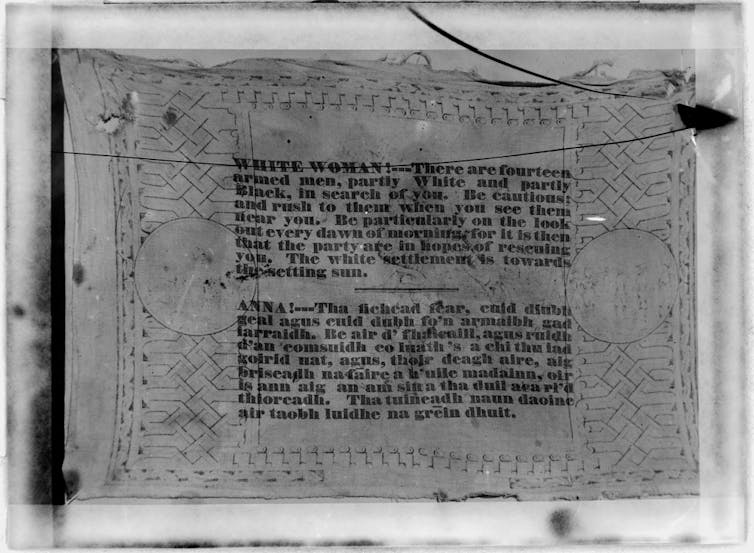 WHITE WOMAN!---There are fourteen
armed men, partly White and partly
Black, in search of you. Be cautious;
and rush to them when you see them
near you. Be particularly on the look
out every dawn of morning, for it is then
that the party are in hopes of rescuing
you. The white settlement is towards
the setting sun.
ANNA!---Tha fichead fear, cuid diubh
geal agus cuid dubh fo'n armaibh gad
iarraidh. Be air d' agus ruidh
d'an 'comsuidh co luath 's a chi thu iad
goirid uat, agus, thoir deagh aire, aig
briseadh na faire a h'uile madainn, oir
is ann aig an am sin a tha duil aca
thiorcadh. Tha tuineadh naun daoine
air taobh luidhe na grein dhuit.